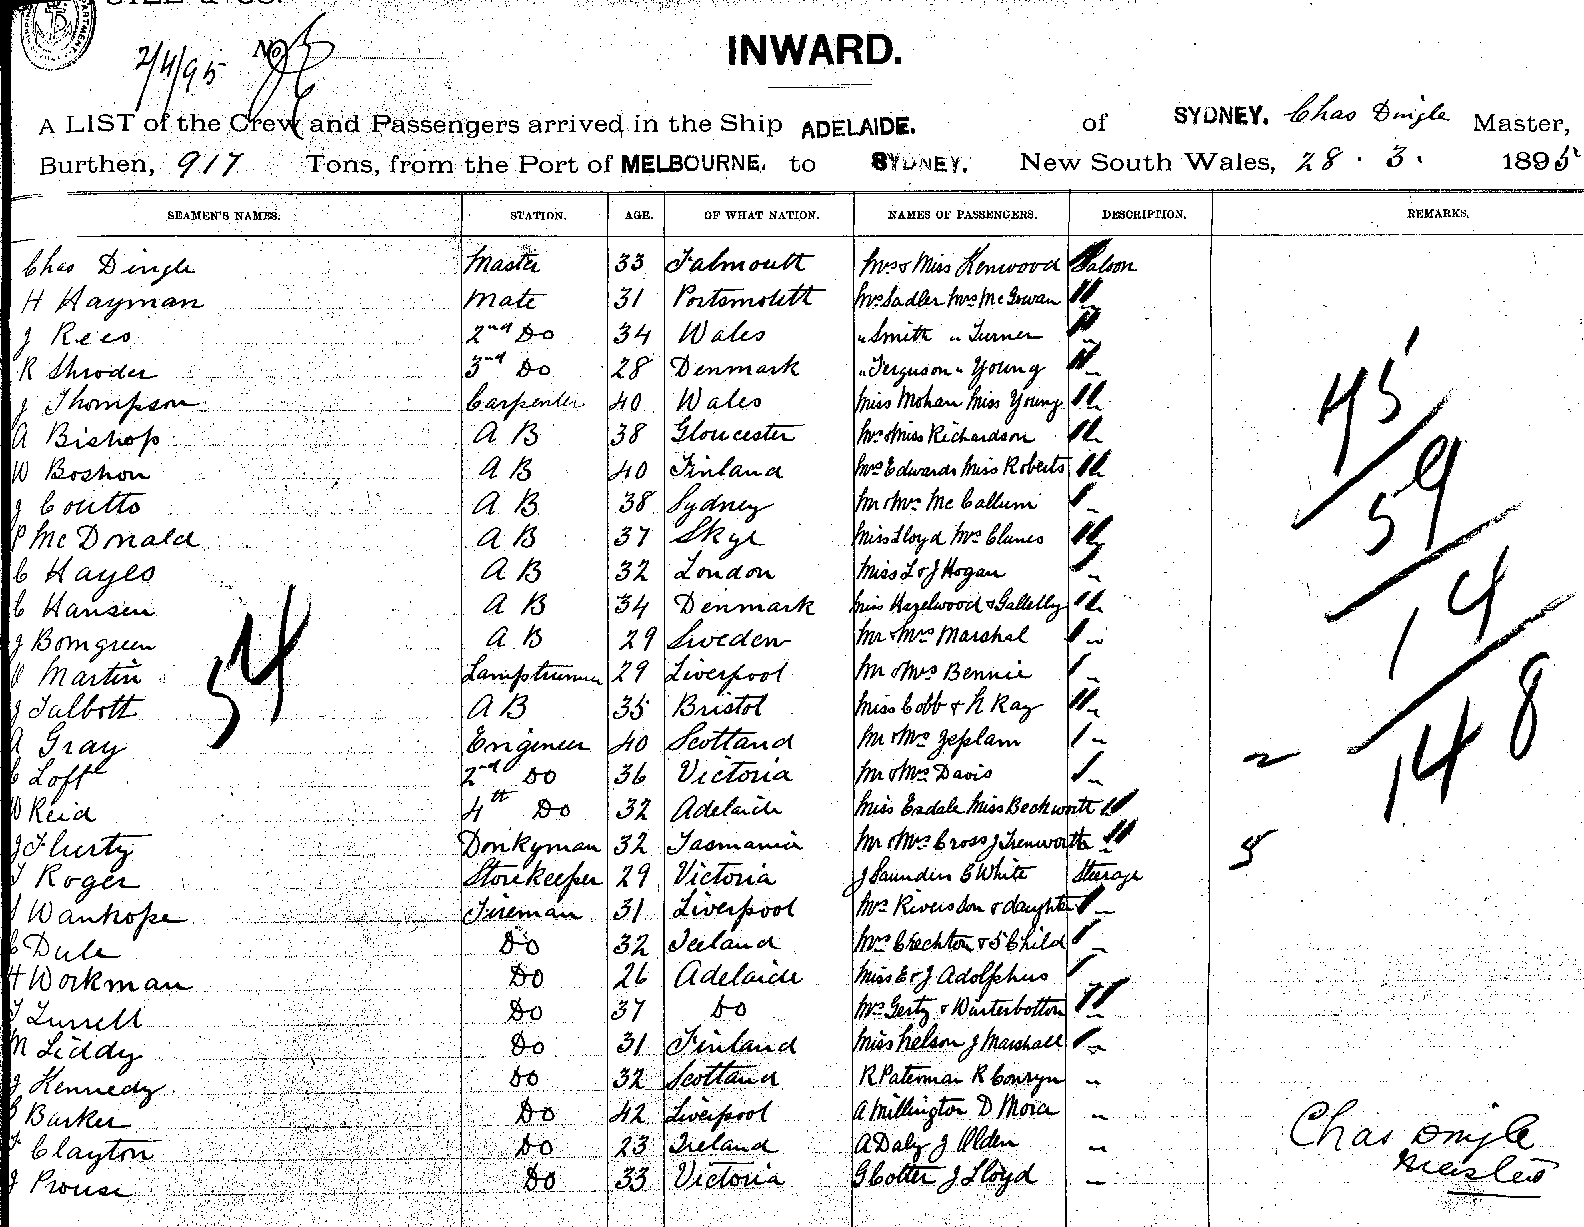 2/4/95 No
INWARD.
A LIST of the Crew and Passengers arrived in the Ship ADELAIDE. of SYDNEY. Chas Dingle Master,
Burthen, 917 Tons, from the Port of MELBOURNE. to SYDNEY. New South Wales, 28 . 3 . 1895
SEAMEN'S NAMES. STATION. AGE. OF WHAT NATION. NAMES OF PASSENGERS. DESCRIPTION. REMARKS.
Chas Dingle Master 33 Falmouth Mrs & Miss Kenwood Saloon
H Hayman Mate 31 Portsmouth Mrs Sadler Mrs McGowan "
J Rees 2nd Do 34 Wales " Smith " Turner "
R Shroder 3rd Do 28 Denmark " Ferguson " Young "
J Thompson Carpenter 40 Wales Miss Mohan Miss Young "
A Bishop A B 38 Gloucester Mrs & Miss Richardson "
W Boshon A B 40 Finland Mrs Edwards Miss Roberts "
J Coutts A B 38 Sydney Mr & Mrs McCallum "
P McDonald A B 37 Skye Miss Lloyd Mrs Clunes "
C Hayes A B 32 London Miss L & J Hogan "
C Hansen A B 34 Denmark Miss Hazelwood & Gallelly "
J Bomgreen A B 29 Sweden Mr & Mrs Marshal "
Martin Lamptrimmer 29 Liverpool Mr & Mrs Bennie "
J Talbott A B 35 Bristol Miss Cobb & R Ray "
A Gray Engineer 40 Scotland Mr & Mrs Zeplam "
C Loft 2nd Do 36 Victoria Mr & Mrs Davis "
W Reid 4th Do 32 Adelaide Miss Esdale Miss Beckworth "
J Flurty Donkyman 32 Tasmania Mr & Mrs Cross J Trenworth "
T Roger Storekeeper 29 Victoria J Saunders C White Steerage
Wanhope Fireman 31 Liverpool Mrs Riversdon & daughter "
C Dule Do 32 Iceland Mrs & 5 Child "
H Workman Do 26 Adelaide Miss E & J Adolphus
T Turrell Do 37 Do Mrs Gerty & Winterbottom "
M Liddy Do 31 Finland Miss Nelson J Marshall "
J Kennedy Do 32 Scotland R Paterman R Conryn "
Barker Do 42 Liverpool A Millington D Moia "
T Clayton Do 23 Ireland A Daly J Olden "
J Prouse Do 33 Victoria G Cotter J Lloyd "
34
45
59
14
148
Chas Dingle
Master